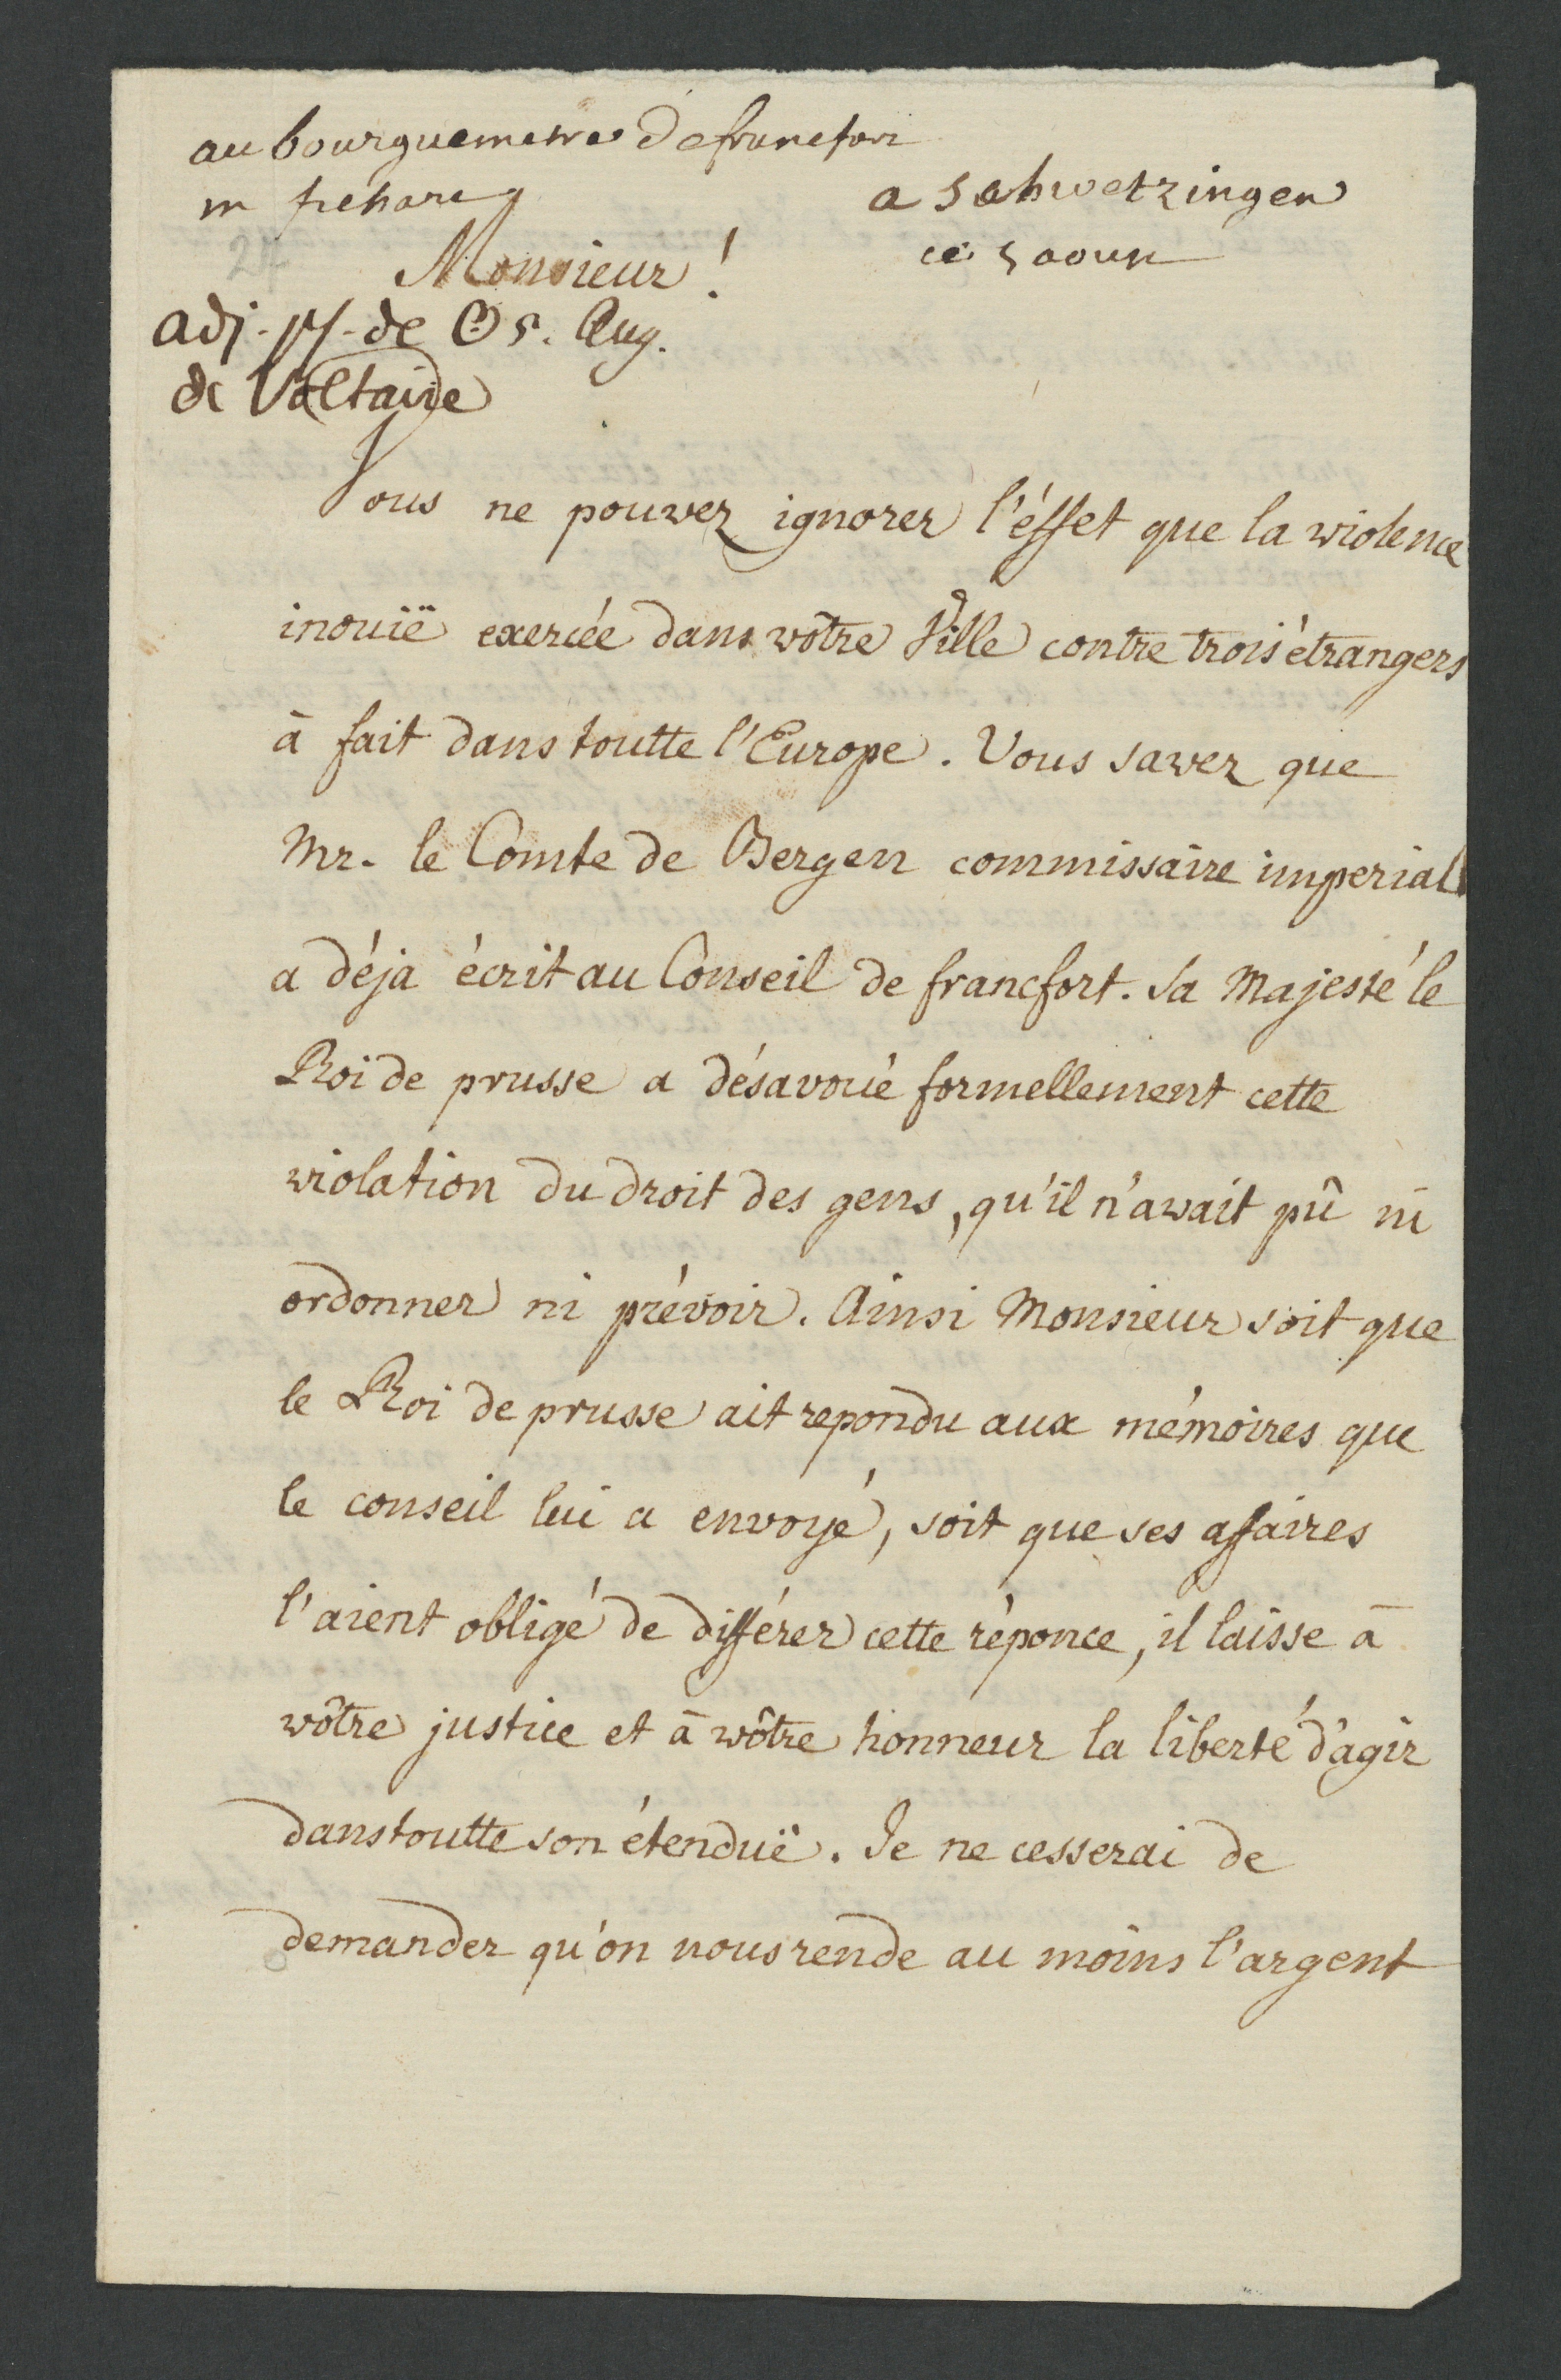 au bourguemestre de francfort
m fichard
a schwetzingen
ce 5 aoust
Monsieur!
adj. 17. de 5. Aug.
de Voltaire
Vous ne pouvez ignorer l'éffet que la violence
inouië exercée dans vôtre Ville contre trois étrangers
à fait dans toutte l'Europe. Vous savez que
Mr. le Comte de Bergen commissaire imperial
a déja écrit au Conseil de francfort. Sa Majesté le
Roi de prusse a désavoüé formellement cette
violation du droit des gens, qu'il n'avait pû ni
ordonner ni prévoir. Ainsi Monsieur soit que
le Roi de prusse ait repondu aux mémoires que
le conseil lui a envoyé, soit que ses affaires
l'aient obligé de différer cette réponce, il laisse à
vôtre justice et à vôtre honneur la liberté d'agir
dans toutte son étenduë. Je ne cesserai de
demander qu'on nous rende au moins l'argent